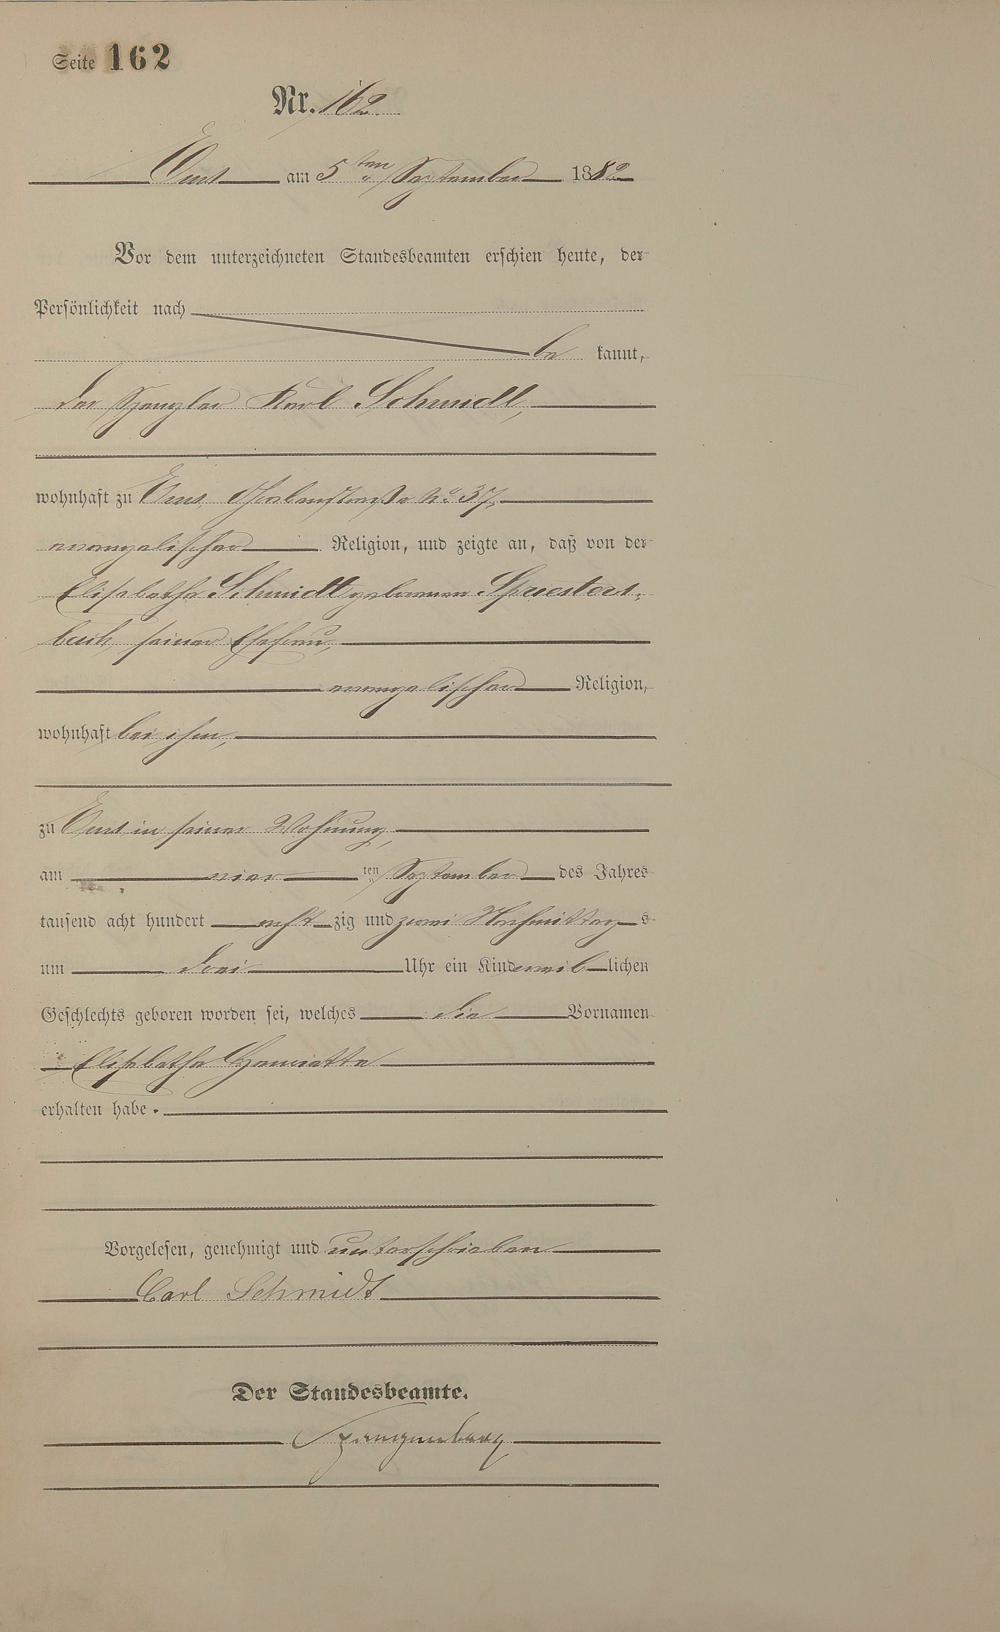 Seite 162
Nr. 162.
Ems am 5 ten September 1882
Vor dem unterzeichneten Standesbeamten erschien heute, der
Persönlichkeit nach
be kannt,
der Spengler Karl Schmidt,
wohnhaft zu Ems, No 37,
evangelischer Religion, und zeigte an, daß von der
Elisabetha Schmidt geborenen Spriesters-
bach, seiner Ehefrau,
evangelischer Religion,
wohnhaft bei ihm,
zu Ems in seiner Wohnung,
am vier ten September des Jahres
tausend acht hundert acht zig und zwei Nachmittag s
um drei Uhr ein Kind weib lichen
Geschlechts geboren worden sei, welches die Vornamen
Elisabetha Henriette
erhalten habe.
Vorgelesen, genehmigt und unterschrieben
Carl Schmidt
Der Standesbeamte.
Spangenberg